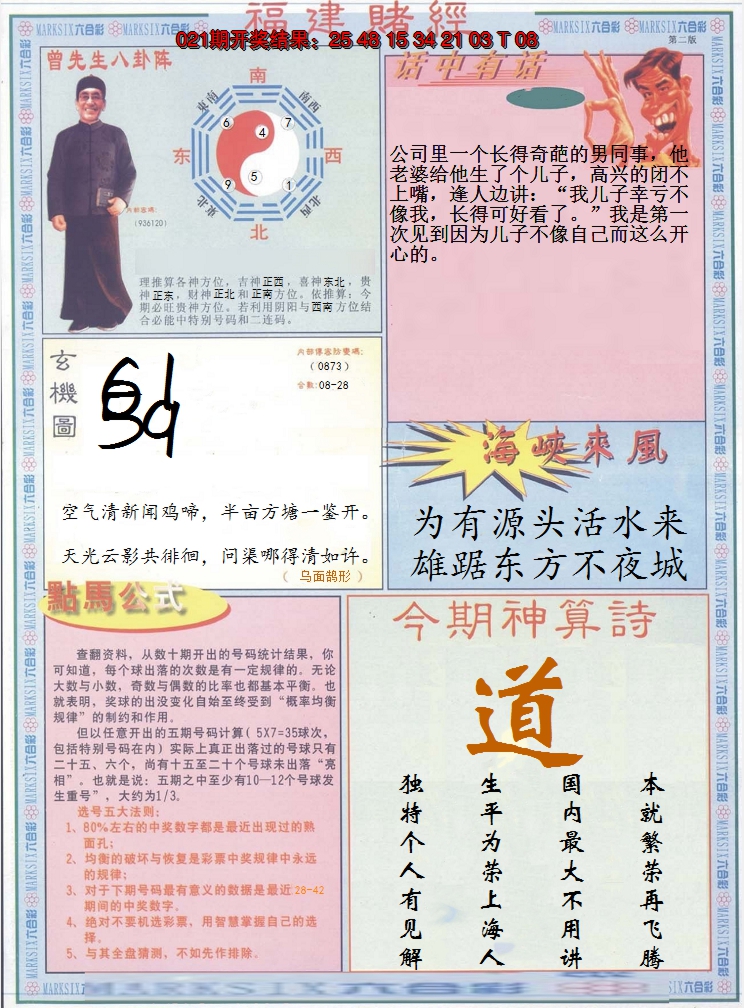 福建賭經
MARKSIX六合彩 MARKSIX六合彩 MARKSIX六合彩 MARKSIX六合彩
021期开奖结果：25 48 15 34 21 03 T 08
第二版
曾先生八卦阵
南
东南
南西
6
7
4
东
西
5
9
1
东北
北西
北
内部密碼:
(936120)
理推算各神方位，吉神正西，喜神东北，贵
神正东，财神正北和正南方位。依推算：今
期必旺贵神方位。若利用阴阳与西南方位结
合必能中特别号码和二连码。
话中有话
公司里一个长得奇葩的男同事，他
老婆给他生了个儿子，高兴的闭不
上嘴，逢人边讲：“我儿子幸亏不
像我，长得可好看了。”我是第一
次见到因为儿子不像自己而这么开
心的。
玄機圖
内部傳密防密碼:
(0873)
合数:08-28
空气清新闻鸡啼，半亩方塘一鉴开。
天光云影共徘徊，问渠哪得清如许。
（ 鸟面鹄形 ）
海峽來風
为有源头活水来
雄踞东方不夜城
點馬公式
查翻资料，从数十期开出的号码统计结果，你
可知道，每个球出落的次数是有一定规律的。无论
大数与小数，奇数与偶数的比率也都基本平衡。也
就表明，奖球的出没变化自始至终受到“概率均衡
规律”的制约和作用。
但以任意开出的五期号码计算( 5X7=35球次，
包括特别号码在内）实际上真正出落过的号球只有
二十五、六个，尚有十五至二十个号球未出落“亮
相”。也就是说：五期之中至少有10—12个号球发
生重号”，大约为1/3。
选号五大法则：
1、80%左右的中奖数字都是最近出现过的熟
面孔；
2、均衡的破坏与恢复是彩票中奖规律中永远
的规律；
3、对于下期号码最有意义的数据是最近28-42
期间的中奖数字。
4、绝对不要机选彩票，用智慧掌握自己的选
择。
5、与其全盘猜测，不如先作排除。
今期神算詩
道
独特个人有见解
生平为荣上海人
国内最大不用讲
本就繁荣再飞腾